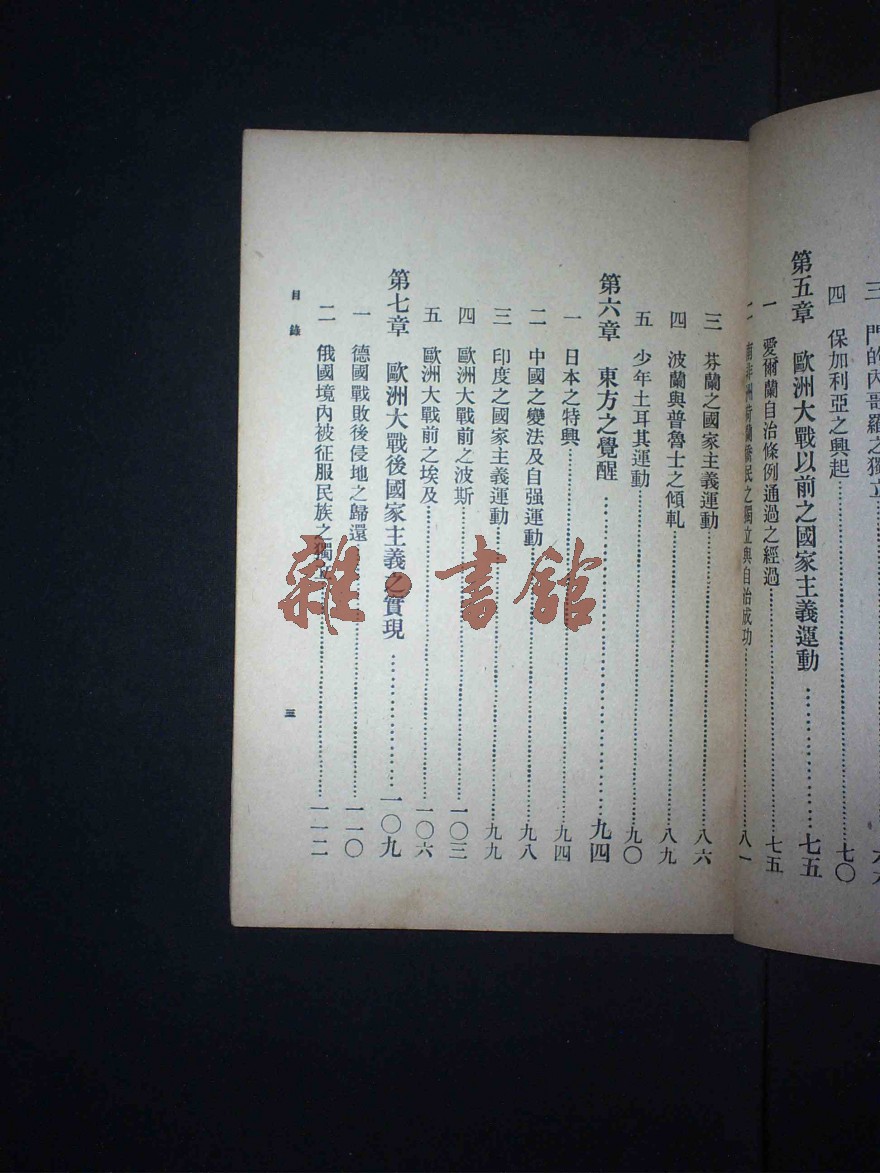 三 門的內哥羅之獨立
四 保加利亞之興起 七〇
第五章 歐洲大戰以前之國家主義運動 七五
一 愛爾蘭自治條例通過之經過 七五
二 南非洲荷蘭僑民之獨立與自治成功 八一
三 芬蘭之國家主義運動 八六
四 波蘭與普魯士之傾軋 八九
五 少年土耳其運動 九〇
第六章 東方之覺醒 九四
一 日本之特興 九四
二 中國之變法及自强運動 九八
三 印度之國家主義運動 九九
四 歐洲大戰前之波斯 一〇三
五 歐洲大戰前之埃及 一〇六
第七章 歐洲大戰後國家主義之實現 一〇九
一 德國戰敗後侵地之歸還 一一〇
二 俄國境內被征服民族之獨立 一一二
目錄
三
雜·書館